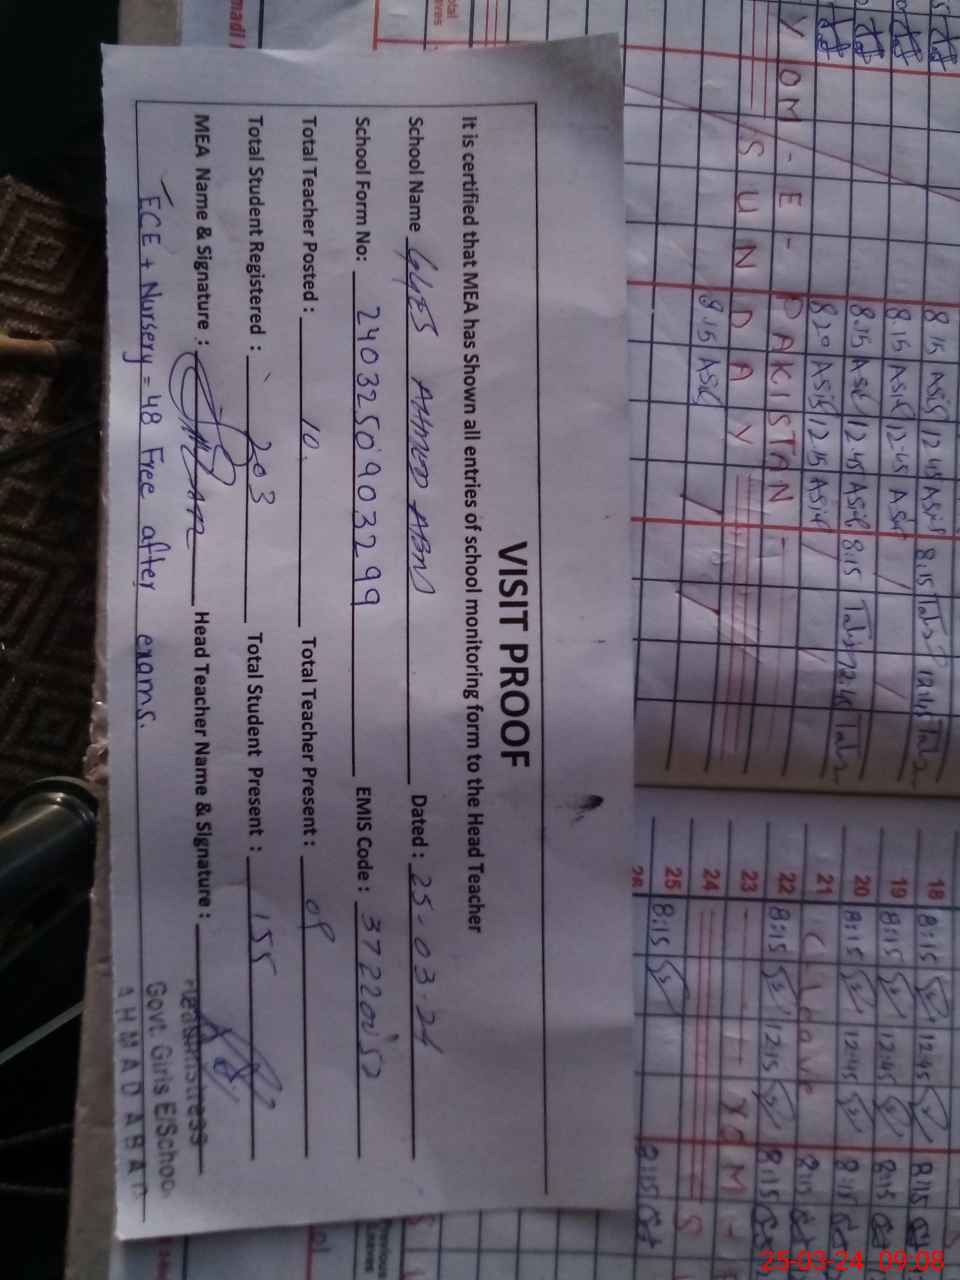 VISIT PROOF
It is certified that MEA has Shown all entries of school monitoring form to the Head Teacher
School Name GGES AHMED ABAD Dated : 25-03-24
School Form No: 2403250903299 EMIS Code : 37220157
Total Teacher Posted : 10. Total Teacher Present : 09
Total Student Registered : 203 Total Student Present : 155
MEA Name & Signature : Head Teacher Name & Signature :
Headmistress
Govt. Girls E/School
AHMADABAD
ECE + Nursery = 48 Free after exams.
YOM-E-PAKISTAN-
SUNDAY
8.15 Asif 12.45 Asif 8:15
8.15 Asif 12.45 Asif
8.15 Asif 12.45 Asif 8:15
8.20 Asif 12.15 Asif
8.15 Asif
18 8:15 12:45 8:15
19 8:15 12:45 8:15
20 8:15 12:45 8:15
21 C Leave 8:15
22 8:15 12:15 8:15
23 YOM-
24 S
25 8:15 8:15
26
Previous
Leaves
25-03-24 09:08